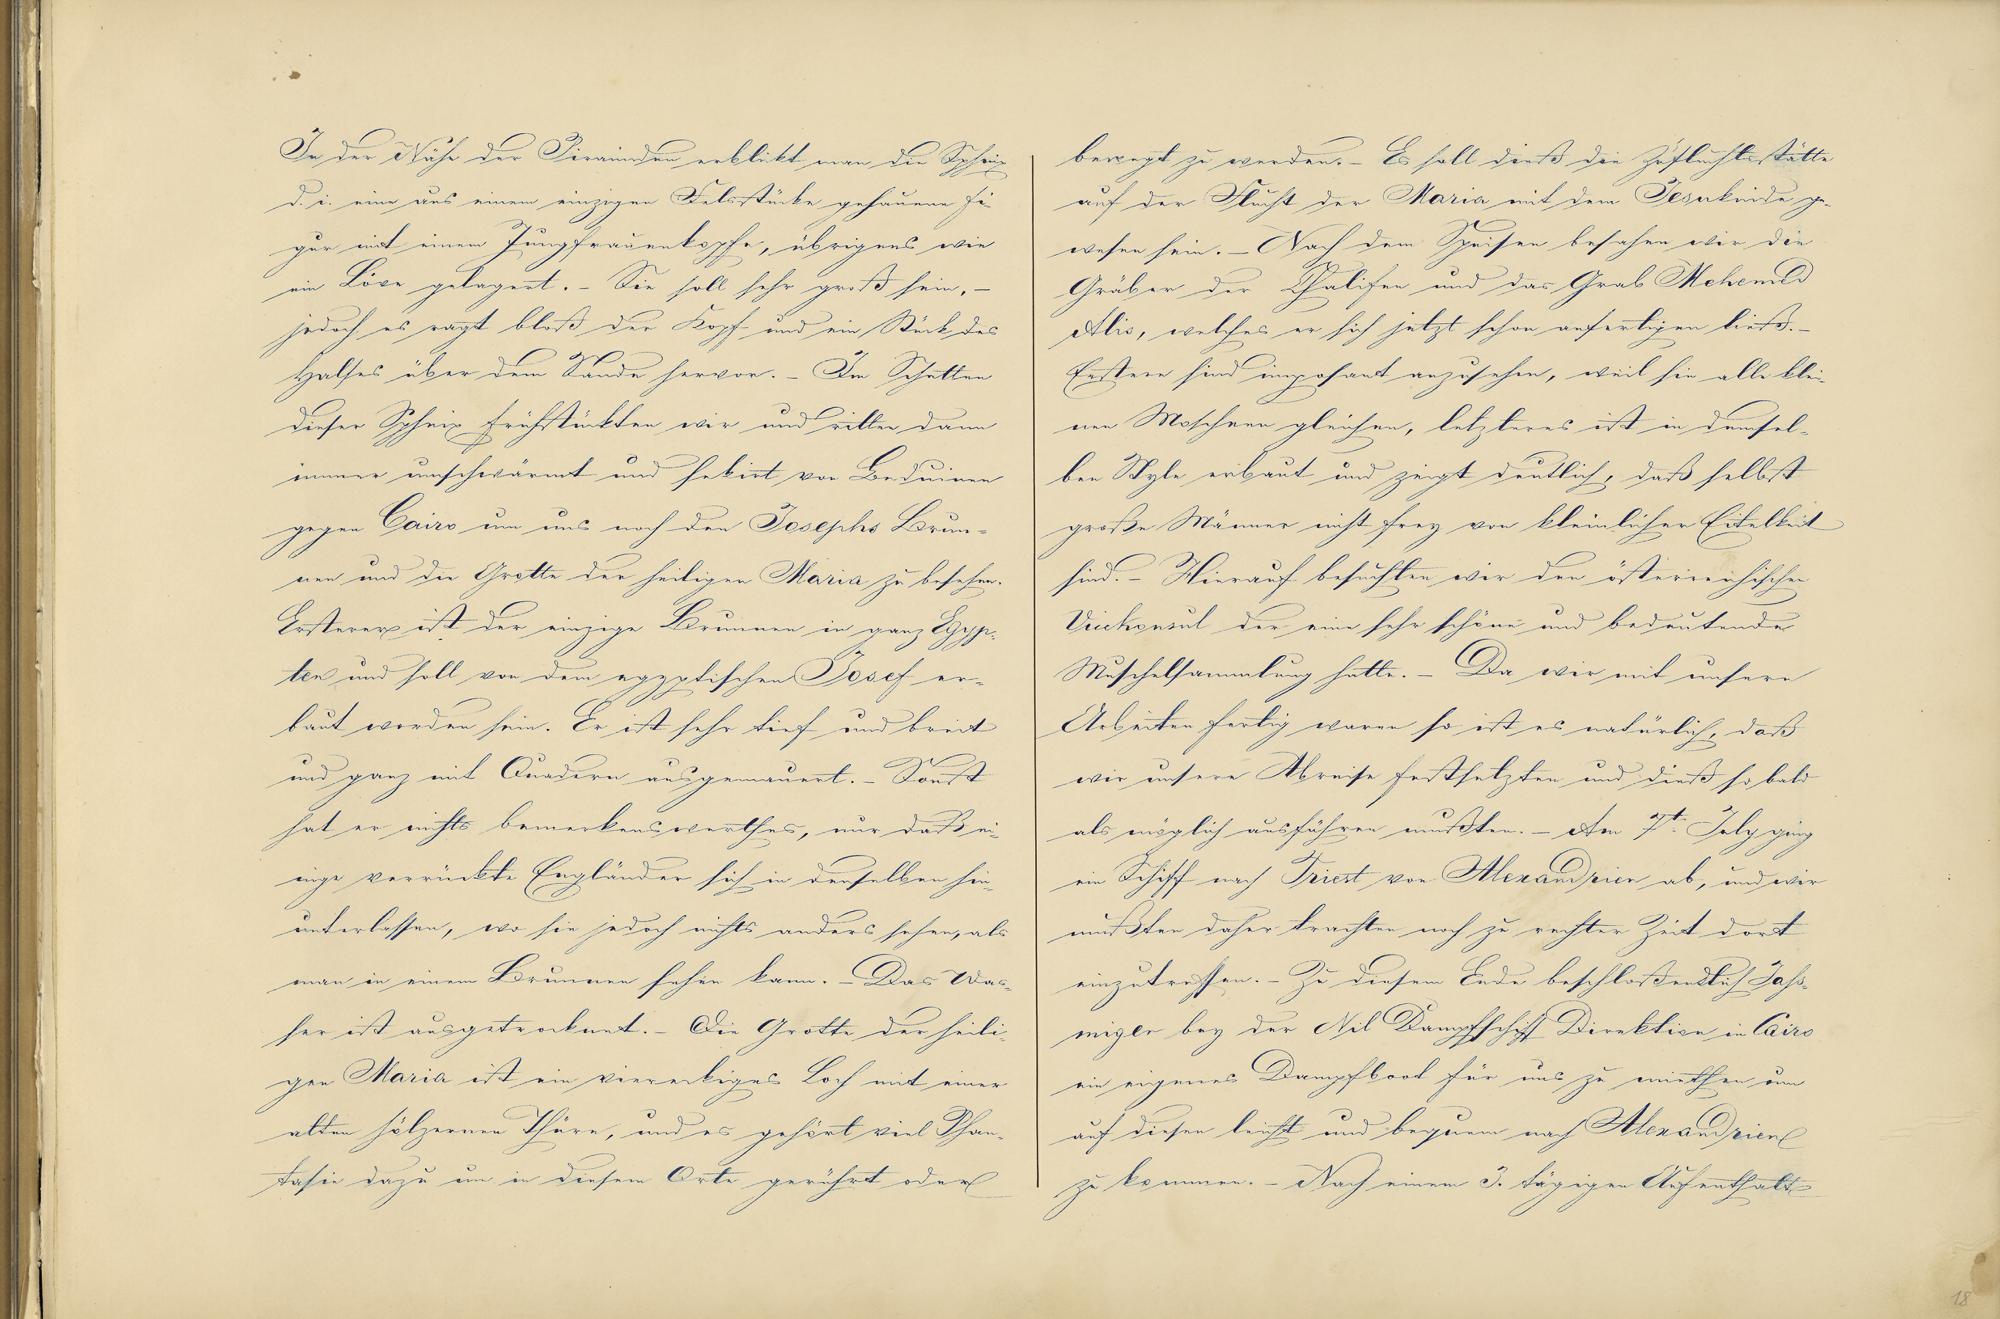 In der Nähe der Piramyden erblickt man die Sphinx
d. i. eine aus einem einzigen Felsstücke gehauene Fi-
gur mit einem Jungfrauenkopfe, übrigens wie
ein Löwe gelagert. – Sie soll sehr groß sein, –
jedoch es ragt bloß der Kopf und ein Stück des
Halses über dem Sande hervor. – Im Schatten
dieser Sphinx frühstückten wir und ritten dann
immer umschwärmt und sekirt von Beduinen
gegen Cairo um uns noch den Josephs Brun-
nen und die Grotte der heiligen Maria zu besehen.
Ersterer ist der einzige Brunnen in ganz Egyp-
ten und soll von dem egyptischen Josef er-
baut worden sein. Er ist sehr tief und breit
und ganz mit Quadern ausgemauert. – Sonst
hat er nichts bemerkenswerthes, nur daß ei-
nige verrückte Engländer sich in denselben hin-
unterlassen, wo sie jedoch nichts anders sehen, als
man in einem Brunnen sehen kann. – Das Was-
ser ist ausgetrocknet. – Die Grotte der heili-
gen Maria ist ein viereckiges Loch mit einer
alten hölzernen Thüre, und es gehört viel Phan-
tasie dazu um in diesem Orte gerührt oder
bewegt zu werden. – Es soll dieß die Zufluchtsstätte
auf der Flucht der Maria mit dem Jesukinde ge-
wesen sein. – Nach dem Speisen besahen wir die
Gräber der Chalifen und das Grab Mehemed
Alis, welches er sich jetzt schon anfertigen ließ. –
Erstere sind imposant anzusehen, weil sie alle klei-
nen Moscheen gleichen, letzteres ist in demsel-
ben Style erbaut und zeigt deutlich, daß selbst
große Männer nicht frey von kleinlicher Eitelkeit
sind. – Hierauf besuchten wir den österreichischen
Vicekonsul der eine sehr schöne und bedeutende
Muschelsammlung hatte. – Da wir mit unsern
Arbeiten fertig waren so ist es natürlich, daß
wir unsere Abreise festsetzten und dieß so bald
als möglich ausführen mußten. – Am 7t. July ging
ein Schiff nach Triest von Alexandrien ab, und wir
mußten daher trachten noch zu rechter Zeit dort
einzutreffen. – Zu diesem Ende beschloß
bey der Nil Dampfschiff Direktion in Cairo
ein eigenes Dampfboot für uns zu miethen um
auf diesen leicht und bequem nach Alexandrien
zu kommen. – Nach einem 3. tägigen Aufenthalte
18